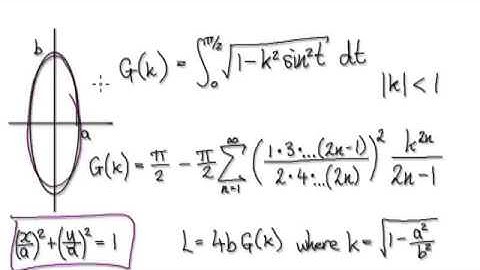 b
a
G(k) = ∫₀^{π/2} √(1-k² sin² t) dt
|k| < 1
G(k) = π/2 - π/2 ∑_{n=1}^{∞} (1·3·...(2n-1) / 2·4·...(2n))² k^{2n} / 2n-1
(x/a)² + (y/a)² = 1
L = 4b G(k) where k = √(1 - a²/b²)